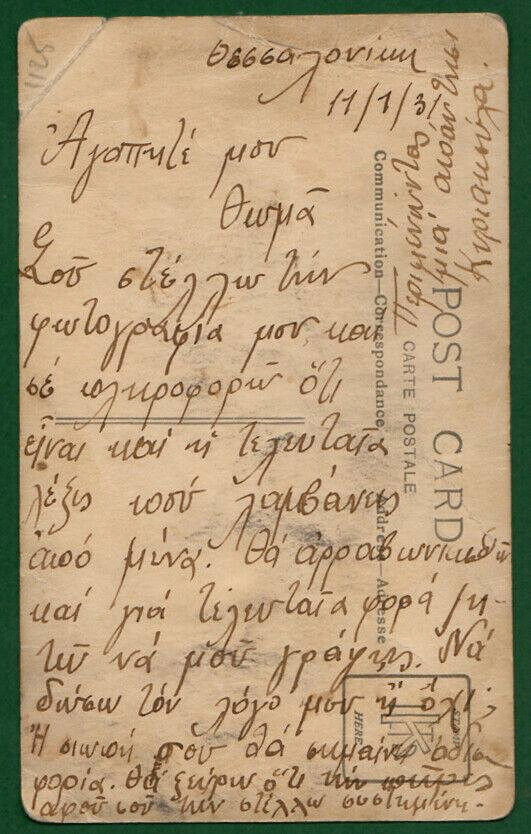 1125
Θεσσαλονίκη
11/1/31
Ἀγαπητέ μου
Θωμᾶ
Σοῦ στέλλω τήν
φωτογραφία μου και
σέ πληροφορῶ ὅτι
εἶναι καί ἡ τελευταῖα
λέξις ποσύ λαμβάνεις
ἀπό μένα. Θά ἀρραβωνιασθῶ
καί γιά τελευταῖα φορά ζη-
τῶ νά μοῦ γράψεις. Νά
δώσω τόν λόγο μου ἤ ὄχι;
Ἡ σιωπή σου θά σημαίνει ἀδια
φορία. Θά ξεύρω ὅτι τήν
ἀφοῦ σοῦ τήν στέλλω συστημένη.
μιά ἀπάντησι
Κυριακούλα.
POST CARD
CARTE POSTALE
Communication—Correspondance
Address—Adresse
STAMP
HERE